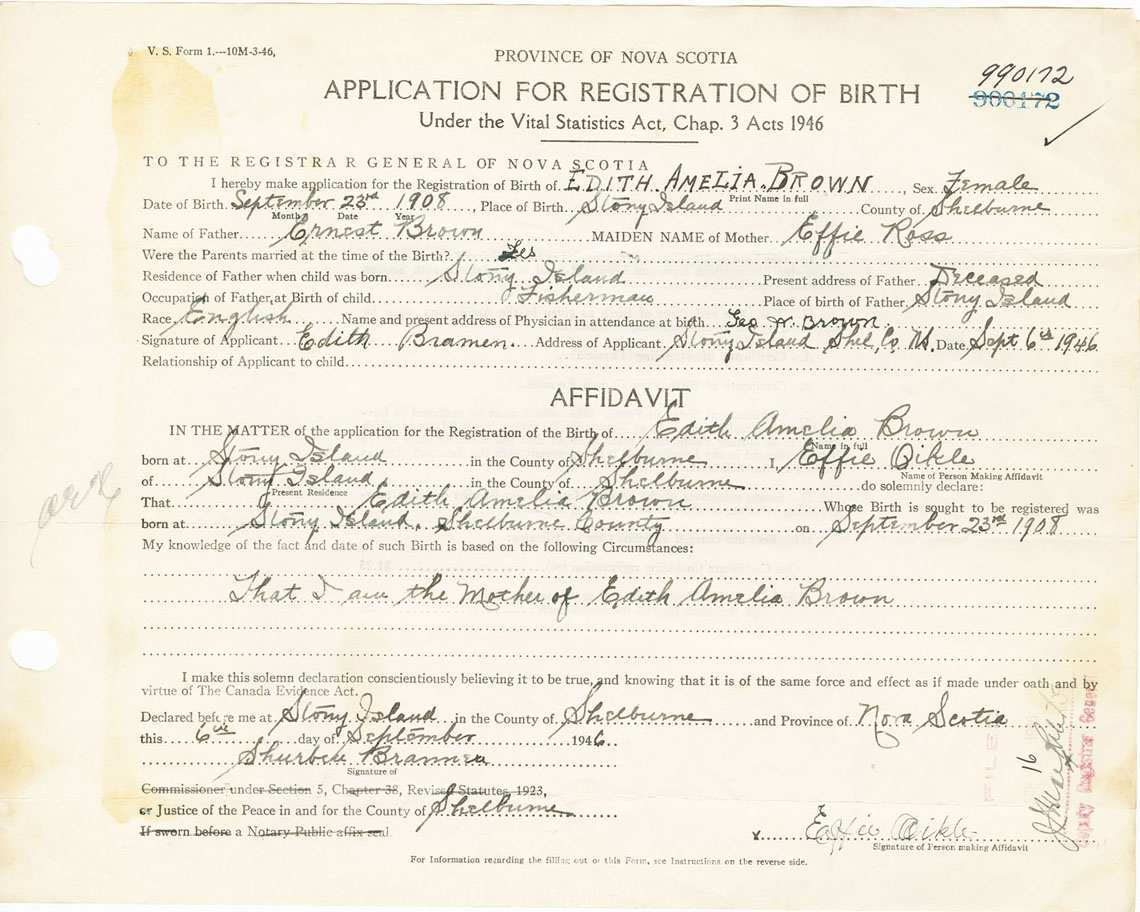 V. S. Form 1.---10M-3-46,
PROVINCE OF NOVA SCOTIA
990172
900172
APPLICATION FOR REGISTRATION OF BIRTH
Under the Vital Statistics Act, Chap. 3 Acts 1946
TO THE REGISTRAR GENERAL OF NOVA SCOTIA
I hereby make application for the Registration of Birth of EDITH AMELIA BROWN, Sex Female
Print Name in full
Date of Birth September 23rd 1908, Place of Birth Stony Island County of Shelburne
Month Date Year
Name of Father Ernest Brown MAIDEN NAME of Mother Effie Ross
Were the Parents married at the time of the Birth? Yes
Residence of Father when child was born Stony Island Present address of Father Deceased
Occupation of Father at Birth of child Fisherman Place of birth of Father Stony Island
Race English Name and present address of Physician in attendance at birth Geo W. Brown
Signature of Applicant Edith Bramen Address of Applicant Stony Island Shel, Co, NS. Date Sept 6th 1946
Relationship of Applicant to child
AFFIDAVIT
IN THE MATTER of the application for the Registration of the Birth of Edith Amelia Brown
Name in full
born at Stony Island in the County of Shelburne I, Effie Oikle
Name of Person Making Affidavit
of Stony Island in the County of Shelburne do solemnly declare:
Present Residence
That Edith Amelia Brown Whose Birth is sought to be registered was
born at Stony Island, Shelburne County on September 23rd 1908
My knowledge of the fact and date of such Birth is based on the following Circumstances:
That I am the Mother of Edith Amelia Brown
I make this solemn declaration conscientiously believing it to be true, and knowing that it is of the same force and effect as if made under oath and by
virtue of The Canada Evidence Act.
Declared before me at Stony Island in the County of Shelburne and Province of Nova Scotia
this 6th day of September 1946.
Signature of
Commissioner under Section 5, Chapter 38, Revised Statutes, 1923,
or Justice of the Peace in and for the County of Shelburne
If sworn before a Notary Public affix seal
x Effie Oikle
Signature of Person making Affidavit
FILED
16
Deputy Registrar General
For Information regarding the filling out of this Form, see Instructions on the reverse side.